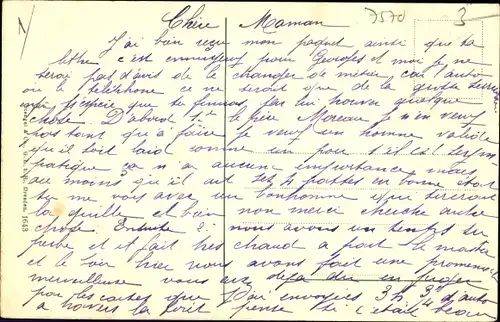 Chère Maman
7570
3
J'ai bien reçu mon paquet ainsi que ta
lettre c'est ennuyeux pour Georges et moi je ne
serai pas d'avis de le changer de métier car l'auto
ou le téléphone ce ne serait que de la
que tu finiras par lui trouver quelque
chose D'abord 1º le frère Moreau je n'en veux
pas tant qu'à faire je veux un homme valide
qu'il soit laid comme un pou il est
pratique ça n'a aucune importance mais
au moins qu'il ait ses 4 pattes en bon état
tu me vois avec un bonhomme qui tirerait
la quille et bien non merci cherche autre
chose Ensuite 2º nous avons un temps
et il fait très chaud à part le matin
et le soir hier nous avons fait une promenade
merveilleuse vous avez déjà dû en juger
par les cartes que j'ai envoyées 3h 3/4 d'auto
à travers la forêt pense si c'était beau
Dresden. 1643